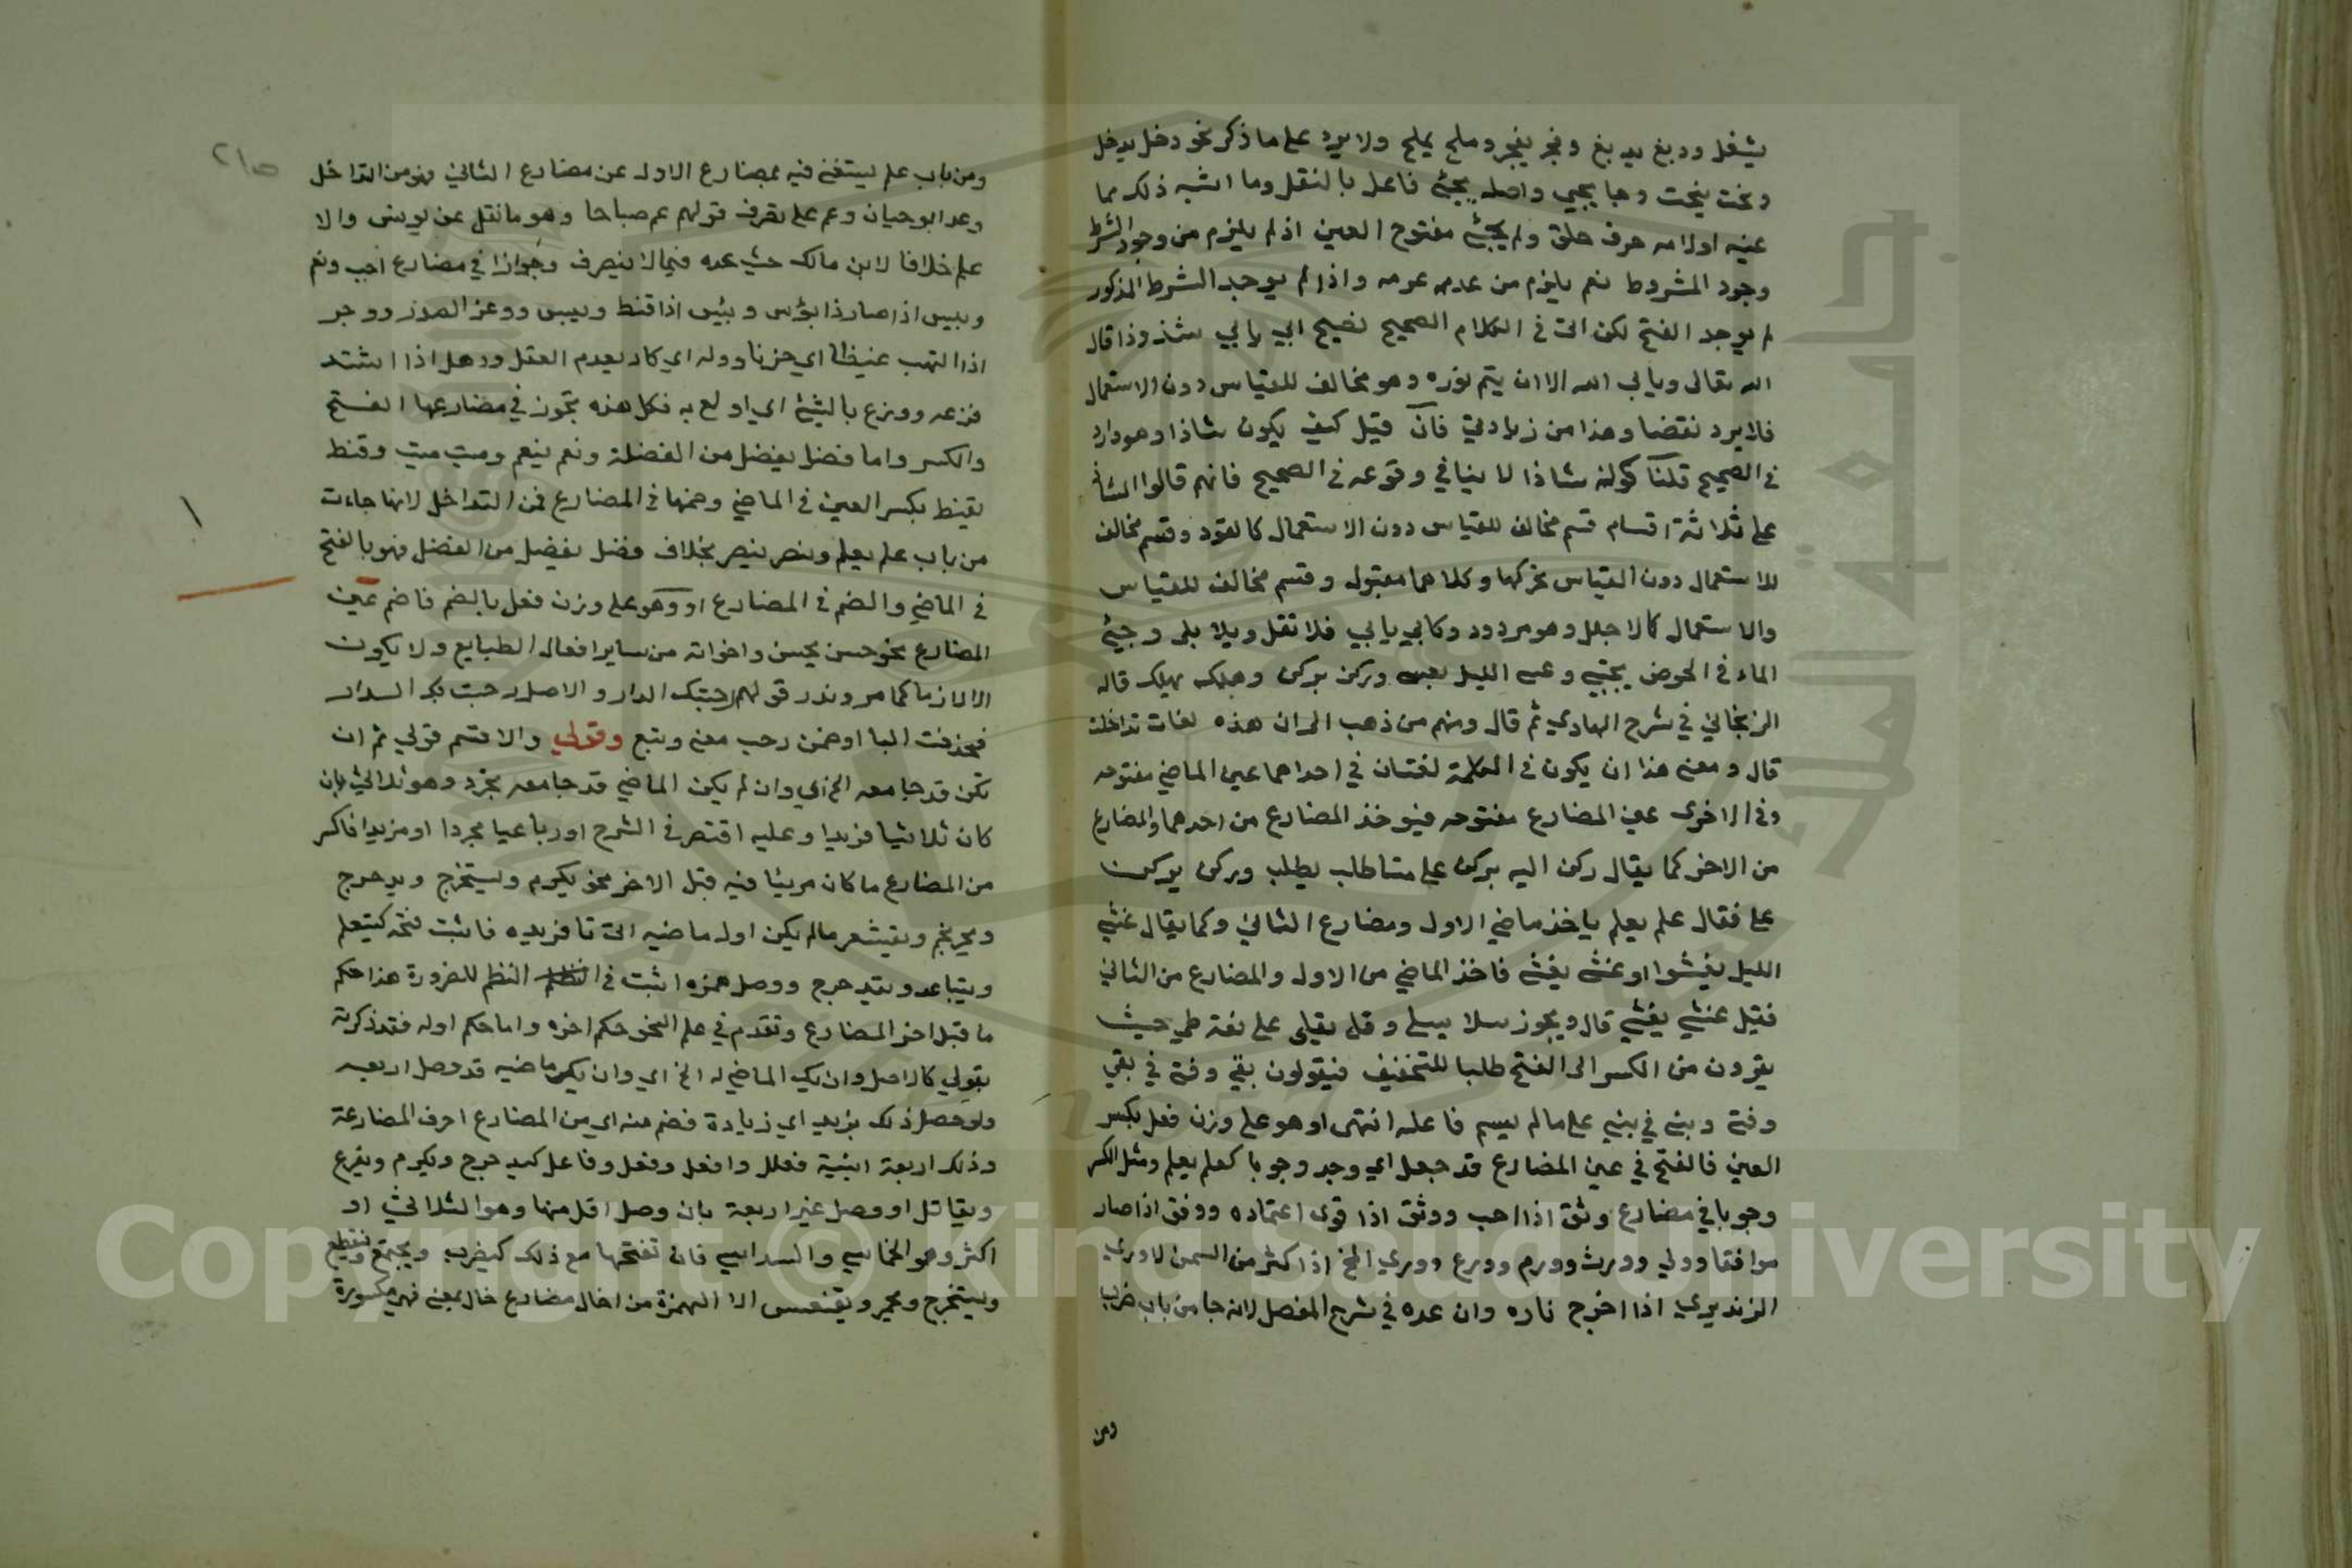 يشغل ودبغ يدبغ وفجر يفجر وملح يملح ولا يرد على ما ذكر نحو دخل يدخل
ونحت ينحت وجا يجيي واصله يجيئ فاعل بالنقل وما اشبه ذلك مما
عينه او لامه حرف حلق ولم يجئ مفتوح العين اذ لم يلزم من وجود الشرط
وجود المشروط نعم يلزم من عدمه عدمه واذا لم يوجد الشرط المذكور
لم يوجد الفتح لكن اتى في الكلام الصحيح فصيح ابي يابي شذوذا قال
الله تعالى ويابى الله الا ان يتم نوره وهو مخالف للقياس دون الاستعمال
فلا يرد نقضا وهذا من زيادتي فان قيل كيف يكون شاذا وهو وارد
في الصحيح قلنا كونه شاذا لا ينافي وقوعه في الصحيح فانهم قالوا الشاذ
على ثلاثة اقسام قسم مخالف للقياس دون الاستعمال كالقود وقسم مخالف
للاستعمال دون القياس وكلاهما مقبول وقسم مخالف للقياس
والاستعمال كالاجلل وهو مردود وكابي يابي فلا تقل وبلا يلى وجبئ
الماء في الحوض يجبي الليل وركن يركن وهلك يهلك قاله
الزنجاني في شرح الهادي ثم قال ومنهم من ذهب الى ان هذه لغات تداخلت
قال ومعنى هذا ان يكون في الكلمة لغتان في احداهما عين الماضي مفتوحه
وفي الاخرى عين المضارع مفتوحه فيوخذ المضارع من احدهما والمضارع
من الاخر كما يقال ركن اليه يركن على مثا طلب يطلب وركن يركن
على فقال علم يعلم ياخذ ماضي الاول ومضارع الثاني وكما يقال غشي
الليل يغشوا او غشى يغشى فاخذ الماضي من الاول والمضارع من الثاني
فقيل غشي يغشي قال ويجوز سلا يسلى وقلى يقلى على لغة طي حيث
يفرون من الكسر الى الفتح طلبا للتخفيف فيقولون بقي وفنى في بقي
وفنى وبنى في بني على ما لم يسم فاعله انتهى او هو على وزن فعل بكسر
العين فالفتح في عين المضارع قد جعل اي وجد وجوبا كعلم يعلم ومثل الكسر
وجوبا في مضارع وثق اذا احب ووثق اذا قوى اعتماده ووفق اذا صار
موافقا وولي وورث وورم وورع ووري المخ اذا كثر من السمن لا وري
الزند يري اذا اخرج ناره وان عده في شرح المفصل لانه جا من باب ضرب
ومن
ومن باب علم يستغنى فيه بمضارع الاول عن مضارع الثاني فهو من التداخل
وعد ابو حيان وعم على تصرف قولهم عم صباحا وهو ما نقل عن يونس والا
علم خلافا لابن مالك حيث عده فيما لا ينصرف وجوازا في مضارع احب ونعم
ويبيس اذا صار ذا بؤس وبئس اذا قنط ويبس ووغر الصدر ووحر
اذا التهب غيظا اي حزنا ووله اي كاد يعدم العقل ووهل اذا اشتد
فزعه ووزع بالشئ اي اولع به فكل هذه تجوز في مضارعها الفتح
والكسر واما فضل يفضل من الفضلة ونعم ينعم وميت ميت وقنط
يقنط بكسر العين في الماضي وضمها في المضارع فمن التداخل لانها جاءت
من باب علم يعلم ونصر ينصر بخلاف فضل يفضل من الفضل فهو بالفتح
في الماضي والضم في المضارع او وهو على وزن فعل بالضم فاضم عين
المضارع نحو حسن يحسن واخواته من ساير افعال الطبايع ولا يكون
الا لازما كما مر وندر قولهم رحبتك الدار والاصل رحبت بك الدار
فحذفت البا او ضمن رحب معنى وسع وقولي والا فتم قولي ثم ان
تكن قد جا معه الخ اي وان لم يكن الماضي قد جا معه مجرد وهو ثلاثي بان
كان ثلاثيا مزيدا وعليه اقتصر في الشرح او رباعيا مجردا او مزيدا فاكسر
من المضارع ما كان مريئا فيه قبل الاخر نحو يكرم ويستخرج ويدحرج
ويحرنجم ويقشعر ما لم يكن اول ماضيه اتى تا مزيده فاثبت فتحه كيتعلم
ويتباعد ويتدحرج ووصل همزه اثبت في النظم للضرورة هذا حكم
ما قبل اخر المضارع وتقدم في علم النحو حكم اخره واما حكم اوله فقد ذكرته
بقولي كالاصل وان يك الماضي له الخ اي وان يكن ماضيه قد وصل اربعه
ولو حصل ذلك بمزيد اي زيادة فضم منه اي من المضارع احرف المضارعة
وذلك اربعة ابنية فعلل وافعل وفعل وفاعل كيدحرج ويكرم ويفرع
ويقاتل او وصل غير اربعة بان وصل اقل منها وهو الثلاثي او
اكثر وهو الخماسي والسداسي فان تفتحها مع ذلك كيضرب ويجتمع وينقطع
ويستخرج ويحمر ويقعنسس الا الهمزة من اخال مضارع خال بمعنى فهي مكسورة